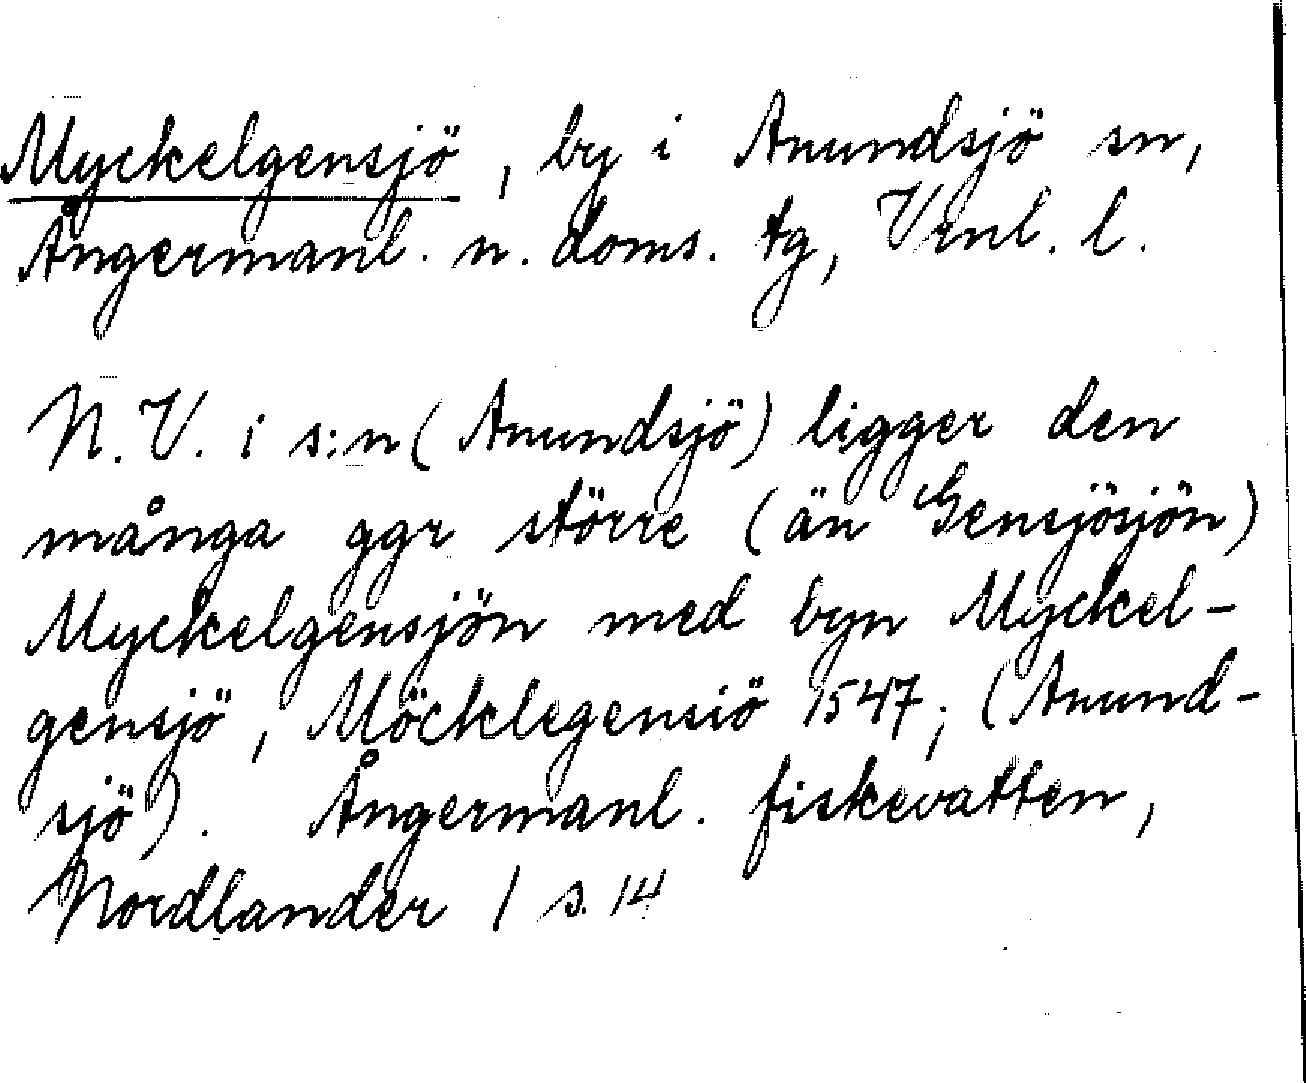 Myckelgensjö, by i Anundsjö sn,
Ångermanl. n. doms. tg, Vrnl. l.
N.V. i s:n (Anundsjö) ligger den
många ggr större (än Gensjösjön)
Myckelgensjön med byn Myckel-
gensjö, Möcklegensiö 1547; (Anund-
sjö). Ångermanl. fiskevatten,
Nordlander 1 s. 14